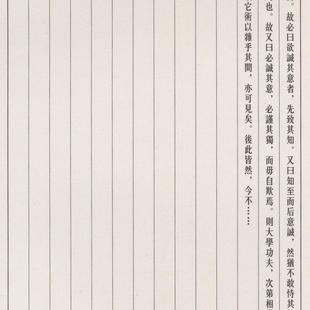 。故必曰欲誠其意者，先致其知。又曰知至而后意誠，然猶不敢恃其
也。故又曰必誠其意，必謹其獨，而毋自欺焉。則大學功夫，次第相
它術以雜乎其間，亦可見矣。後此皆然，今不……